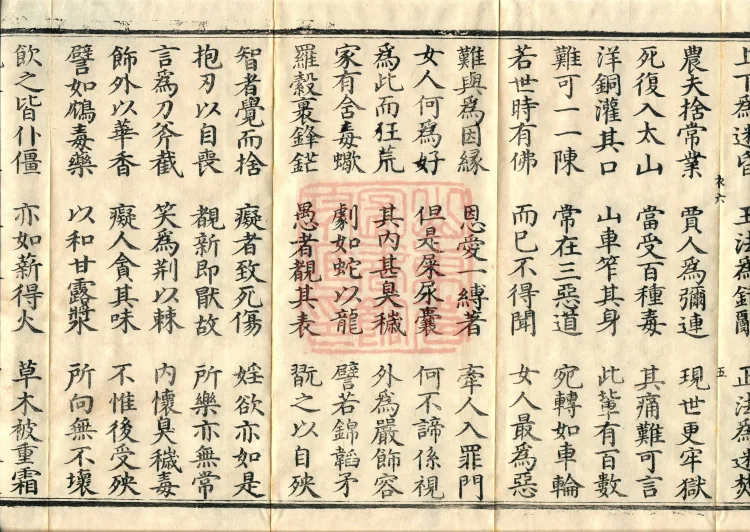 農夫捨常業 賈人為彌連 現世更牢獄
死復入太山 當受百種毒 其痛難可言
洋銅灌其口 山車笮其身 此輩有百數
難可一一陳 常在三惡道 宛轉如車輪
若世時有佛 而已不得聞 女人最為惡
難與為因緣 恩愛一縛著 牽人入罪門
女人何為好 但是屎尿囊 何不諦係視
為此而狂荒 其內甚臭穢 外為嚴飾容
家有含毒蠍 劇如蛇以龍 譬若錦韜矛
羅縠裹鋒鋩 愚者觀其表 翫之以自殃
智者覺而捨 癡者致死傷 婬欲亦如是
抱刃以自喪 覩新即厭故 所樂亦無常
言為刀斧截 笑為荊以棘 內懷臭穢毒
飾外以華香 癡人貪其味 不惟後受殃
譬如鴆毒藥 以和甘露漿 所向無不壞
飲之皆仆僵 亦如薪得火 草木被重霜
衣六
五